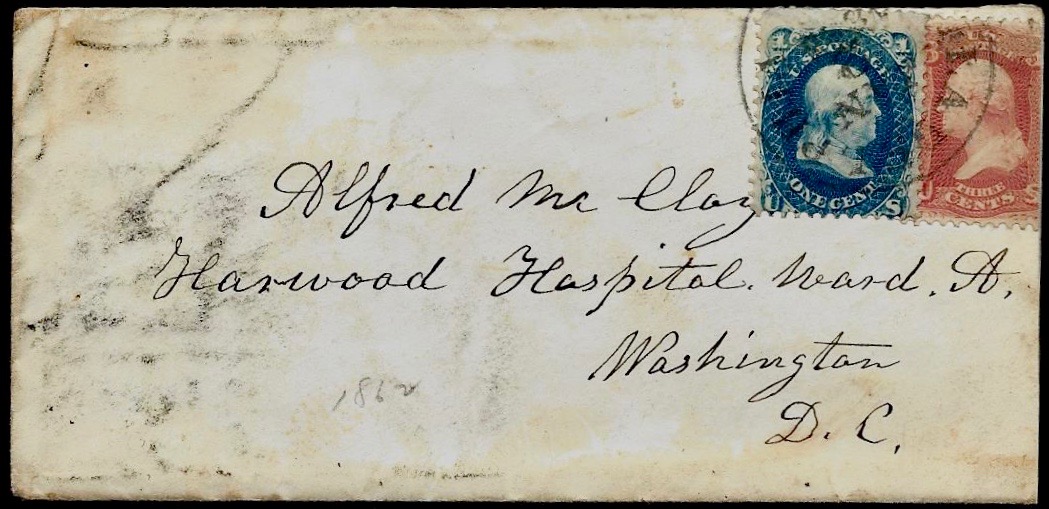 1 U.S. POSTAGE 1
ONE CENT
U S
THREE
CENTS
Alfred Mc Cloy
Harwood Hospital. Ward. A.
Washington
D. C.
1862